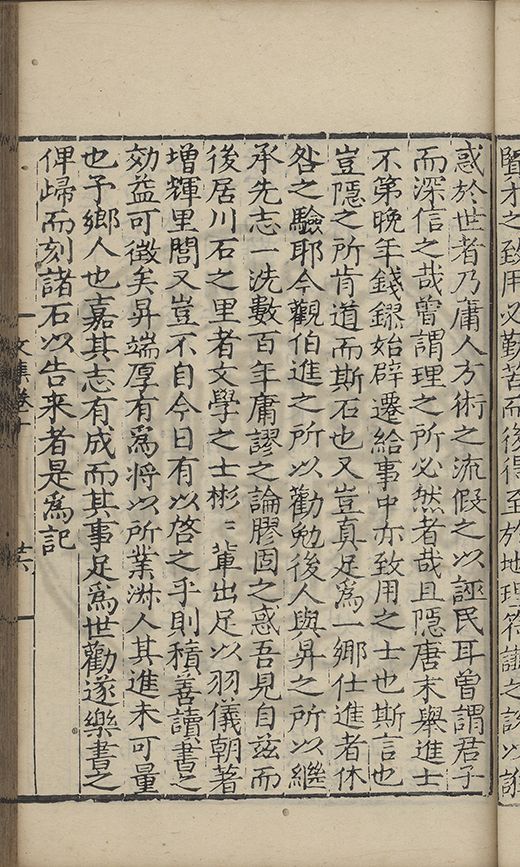 賢才之致用必勤苦而後得至於地理符讖之説以誑
惑於世者乃庸人方術之流假之以誣民耳曾謂君子
而深信之哉曾謂理之所必然者哉且隱唐末舉進士
不第晚年錢鏐始辟遷給事中亦致用之士也斯言也
豈隱之所肯道而斯石也又豈真足爲一鄉仕進者休
咎之驗耶今觀伯進之所以勸勉後人與昇之所以繼
承先志一洗數百年庸謬之論膠固之惑吾見自兹而
後居川石之里者文學之士彬〻軰出足以羽儀朝著
增輝里閭又豈不自今日有以啓之乎則積善讀書之
効益可徵矣昇端厚有爲將以所業淋人其進未可量
也予鄉人也嘉其志有成而其事足爲世勸遂樂書之
俾歸而刻諸石以告来者是爲記
文集卷十
十六